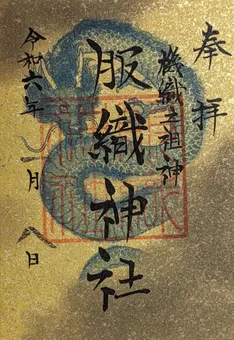 奉拝
機織之祖神
服織神社
令和六年
一月
八日